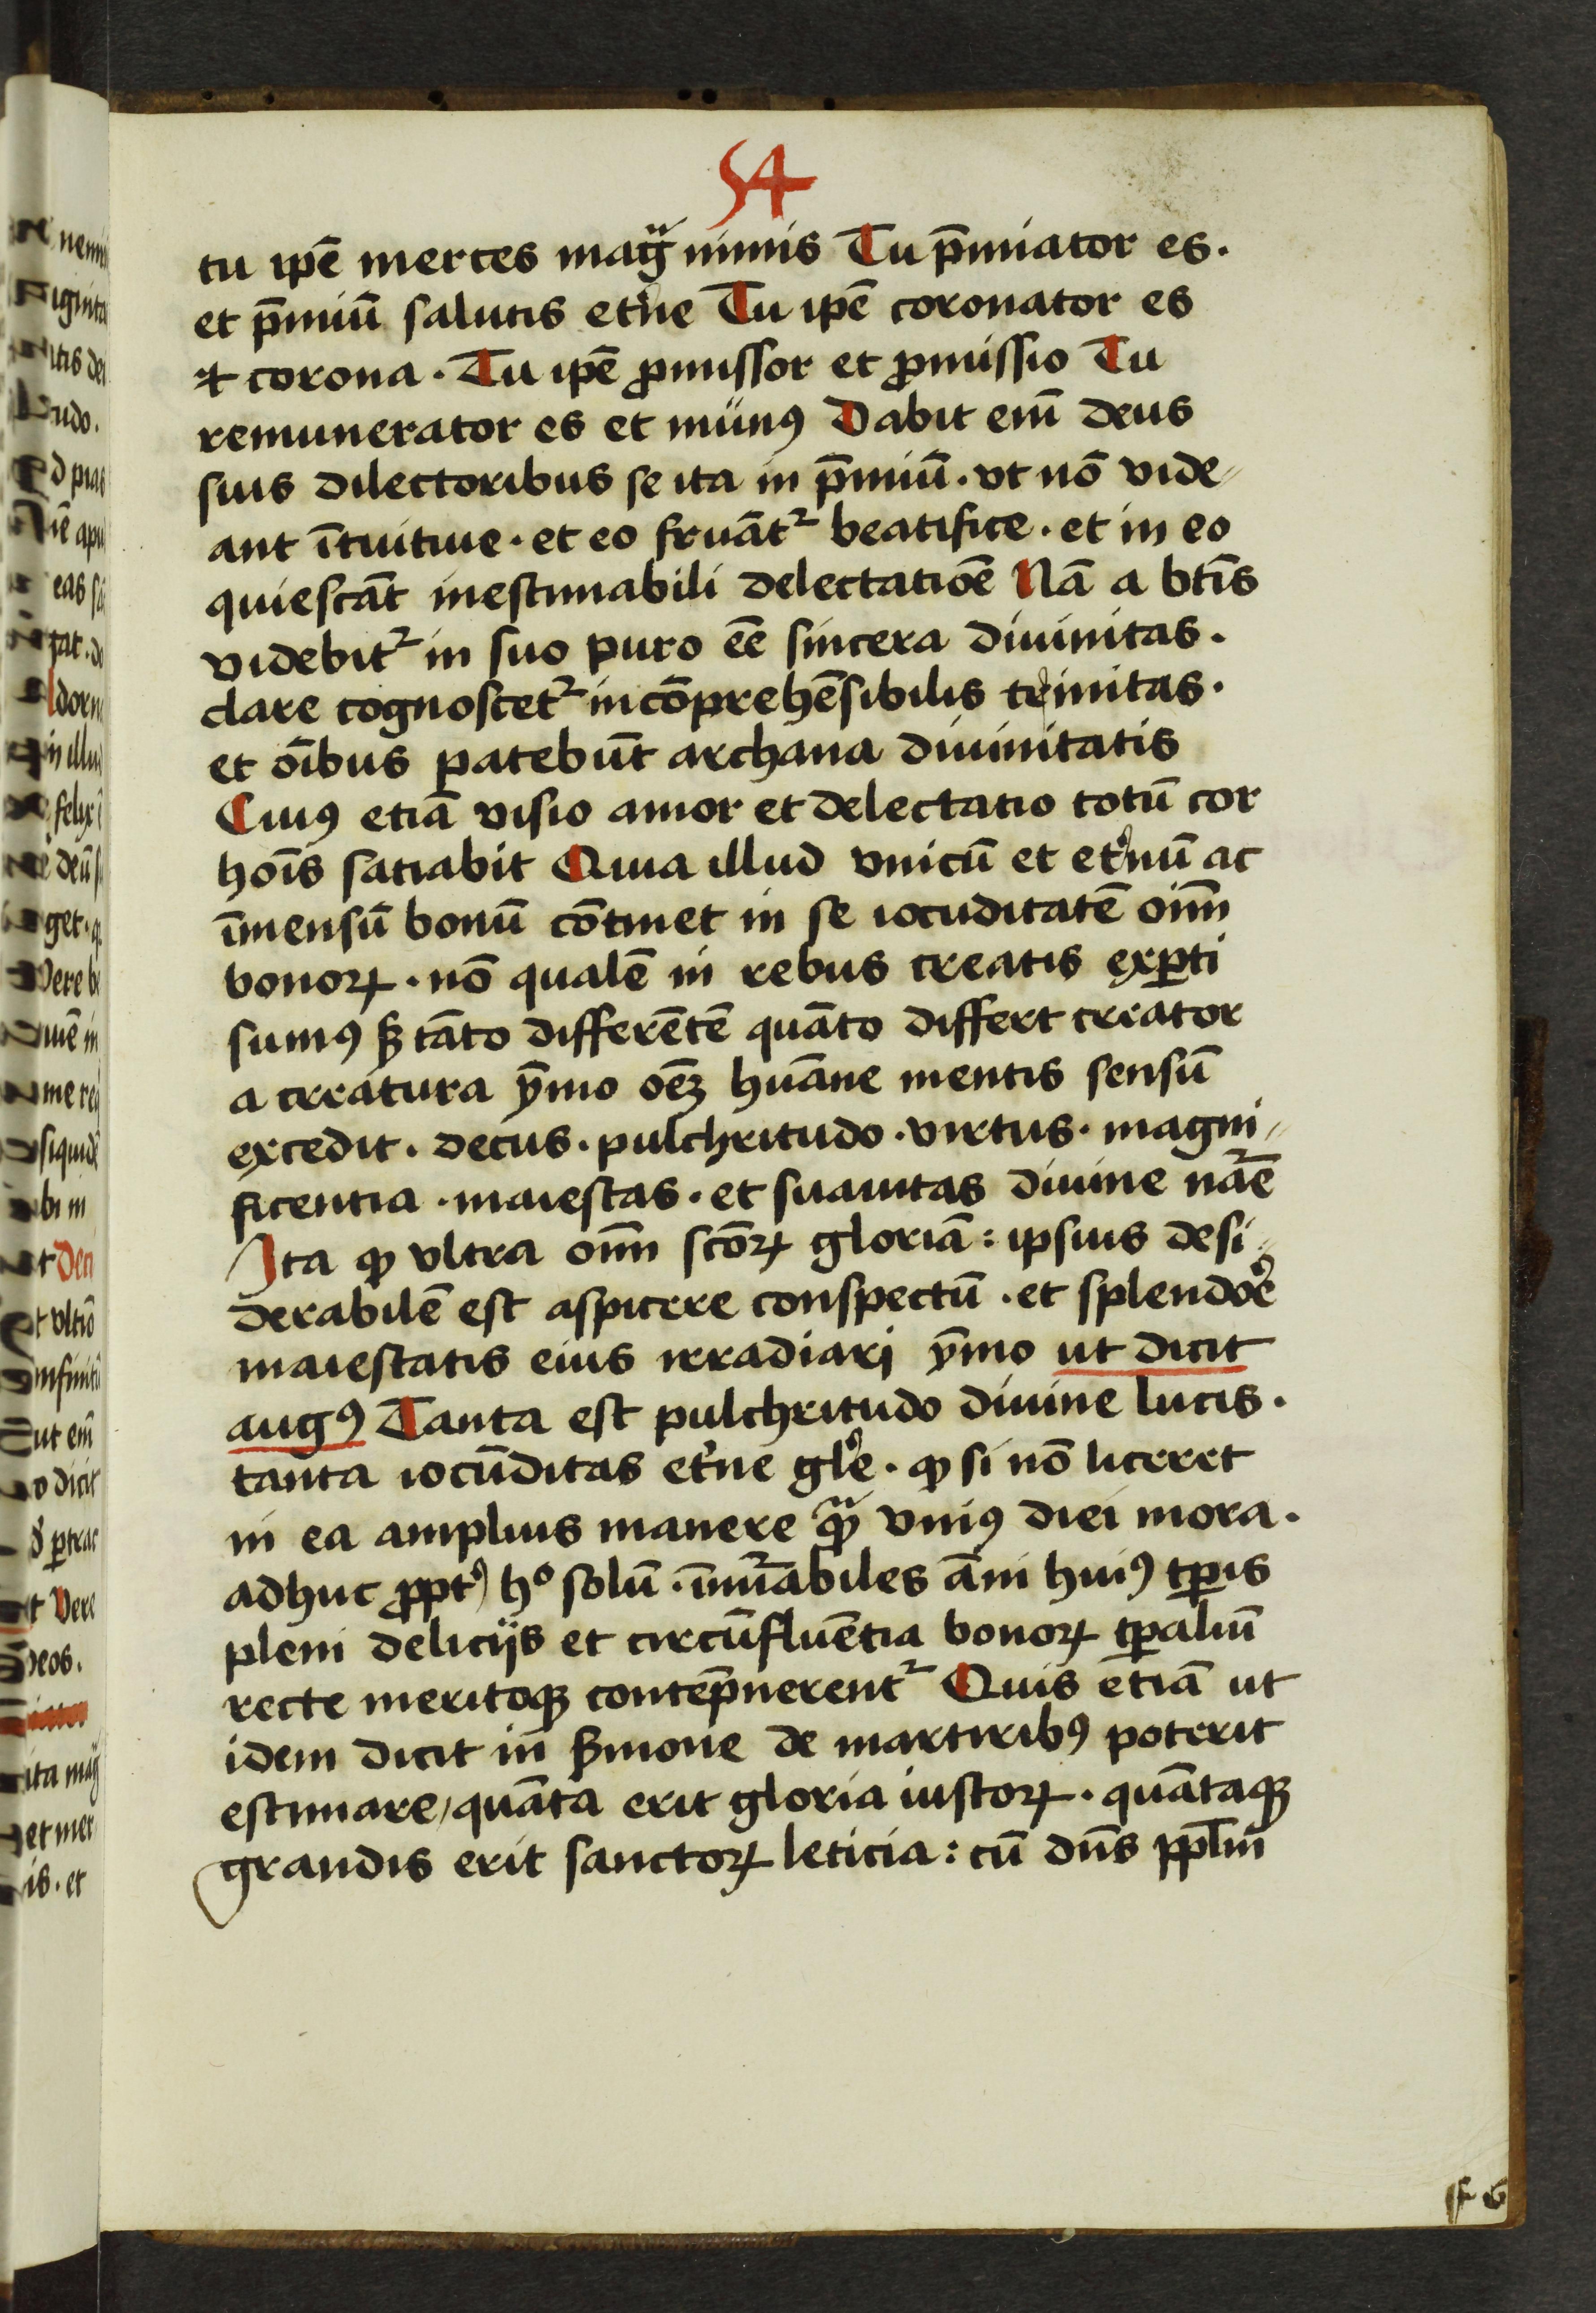 54
tu ipē merces magͣ nimis Tu p̄miator es.
et p̄miū salutis etne Tu ipē coronator es
et corona. Tu ipē ꝓmissor et ꝓmissio Tu
remunerator es et munꝰ Dabit eīm deus
suis dilectoribus se ita in p̄miū. vt nō vide//
ant ītuitiue. et eo fruāt᷑ beatifice. et in eo
quiescāt inestimabili delectatiōe Nā a btīs
videbit᷑ in suo puro eē sincera diuinitas.
clare cognoscet᷑ incōprehēsibilis trinitas.
et oībus patebūt archana diuinitatis
Cuiꝰ etiā visio amor et delectatio totū cor
hoīs satiabit Quia illud vnicū et etnū ac
īmensū bonū cōtinet in se iocūditatē oīm
bonoꝝ. nō qualē in rebus creatis exꝑti
sumꝰ sꝫ tāto differētē quāto differt creator
a creatura ȳmo oēꝫ huāne mentis sensū
excedit. decus. pulchritudo. virtus. magni//
ficentia. maiestas. et suauitas diuine nāe
Ita ꝙ vltra oīm scōꝝ gloriā: ipsius desi//
derabilē est aspicere conspectū. et splendoē
maiestatis eius irradiari ȳmo ut dicit
augꝰ Tanta est pulchritudo diuine lucis.
tanta iocūditas etne gle. ꝙ si nō liceret
in ea amplius manere ꝙͣ vniꝰ diei mora.
adhuc ꝓpt hͦ solū. īnūabiles āni huiꝰ tꝑis
pleni delicijs et circūfluētia bonoꝝ tꝑaliū
recte meritoqꝫ contēpnerent᷑ Quis etiā ut
idem dicit in sꝫmone de martiribꝰ poterit
estimare, quāta erit gloria iustoꝝ. quātaqꝫ
grandis erit sanctoꝝ leticia: cū dn̄s pplm̄
f 6